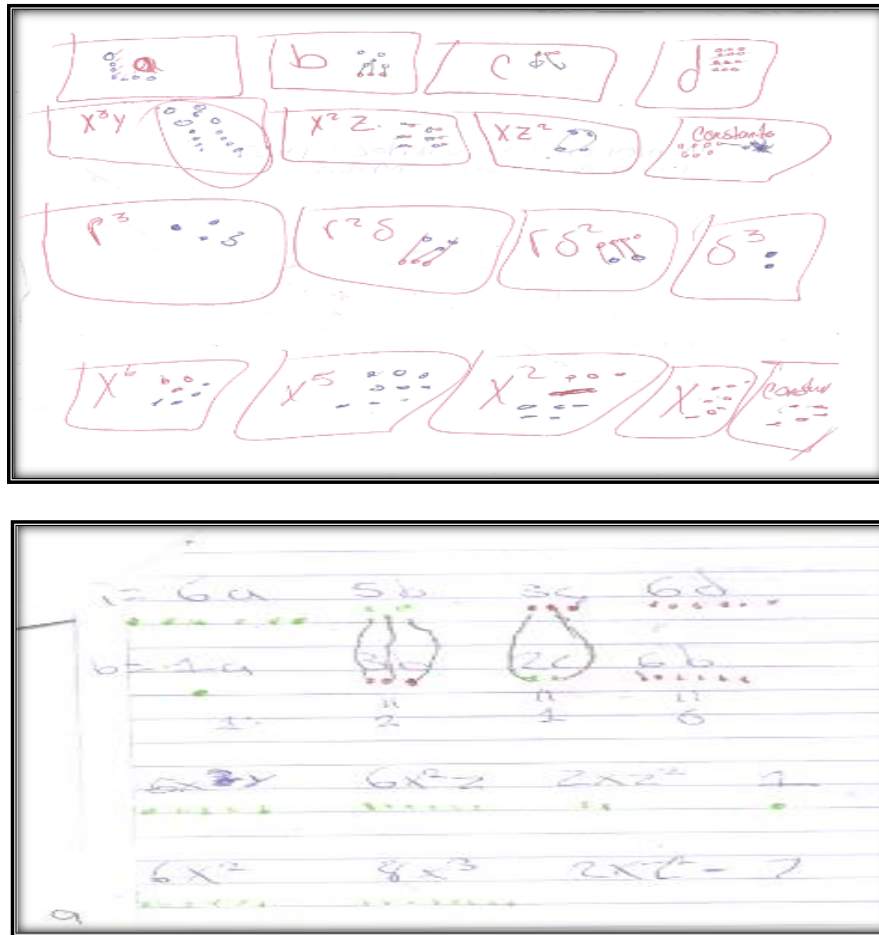 a b c d
x³y x²z xz² Constante
r³ r²δ rδ² δ³
x⁶ x⁵ x² x
6a 5b 3c 6d
b = 1a 3b 2c 6b
2 1 6
6x²z 2xz² 1
6x² 8x³ 2xz² - 7
a